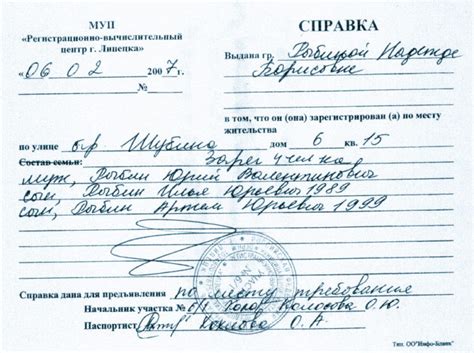 МУП
«Регистрационно-вычислительный
центр г. Липецка»
«06 02 2007 г.
СПРАВКА
Выдана гр. Рыбиной Надежде
Борисовне
в том, что он (она) зарегистрирован (а) по месту
жительства
по улице б-р Шубина дом 6 кв. 15
Состав семьи: Зарег. 4 человека
муж, Рыбин Юрий Валентинович
сын, Рыбин Илья Юрьевич 1989
сын, Рыбин Артем Юрьевич 1999
Справка дана для предъявления по месту требования
Начальник участка № 6/1 Колосова О.Ю.
Паспортист О. А.
Тип. ОО"Инфо-Бланк"